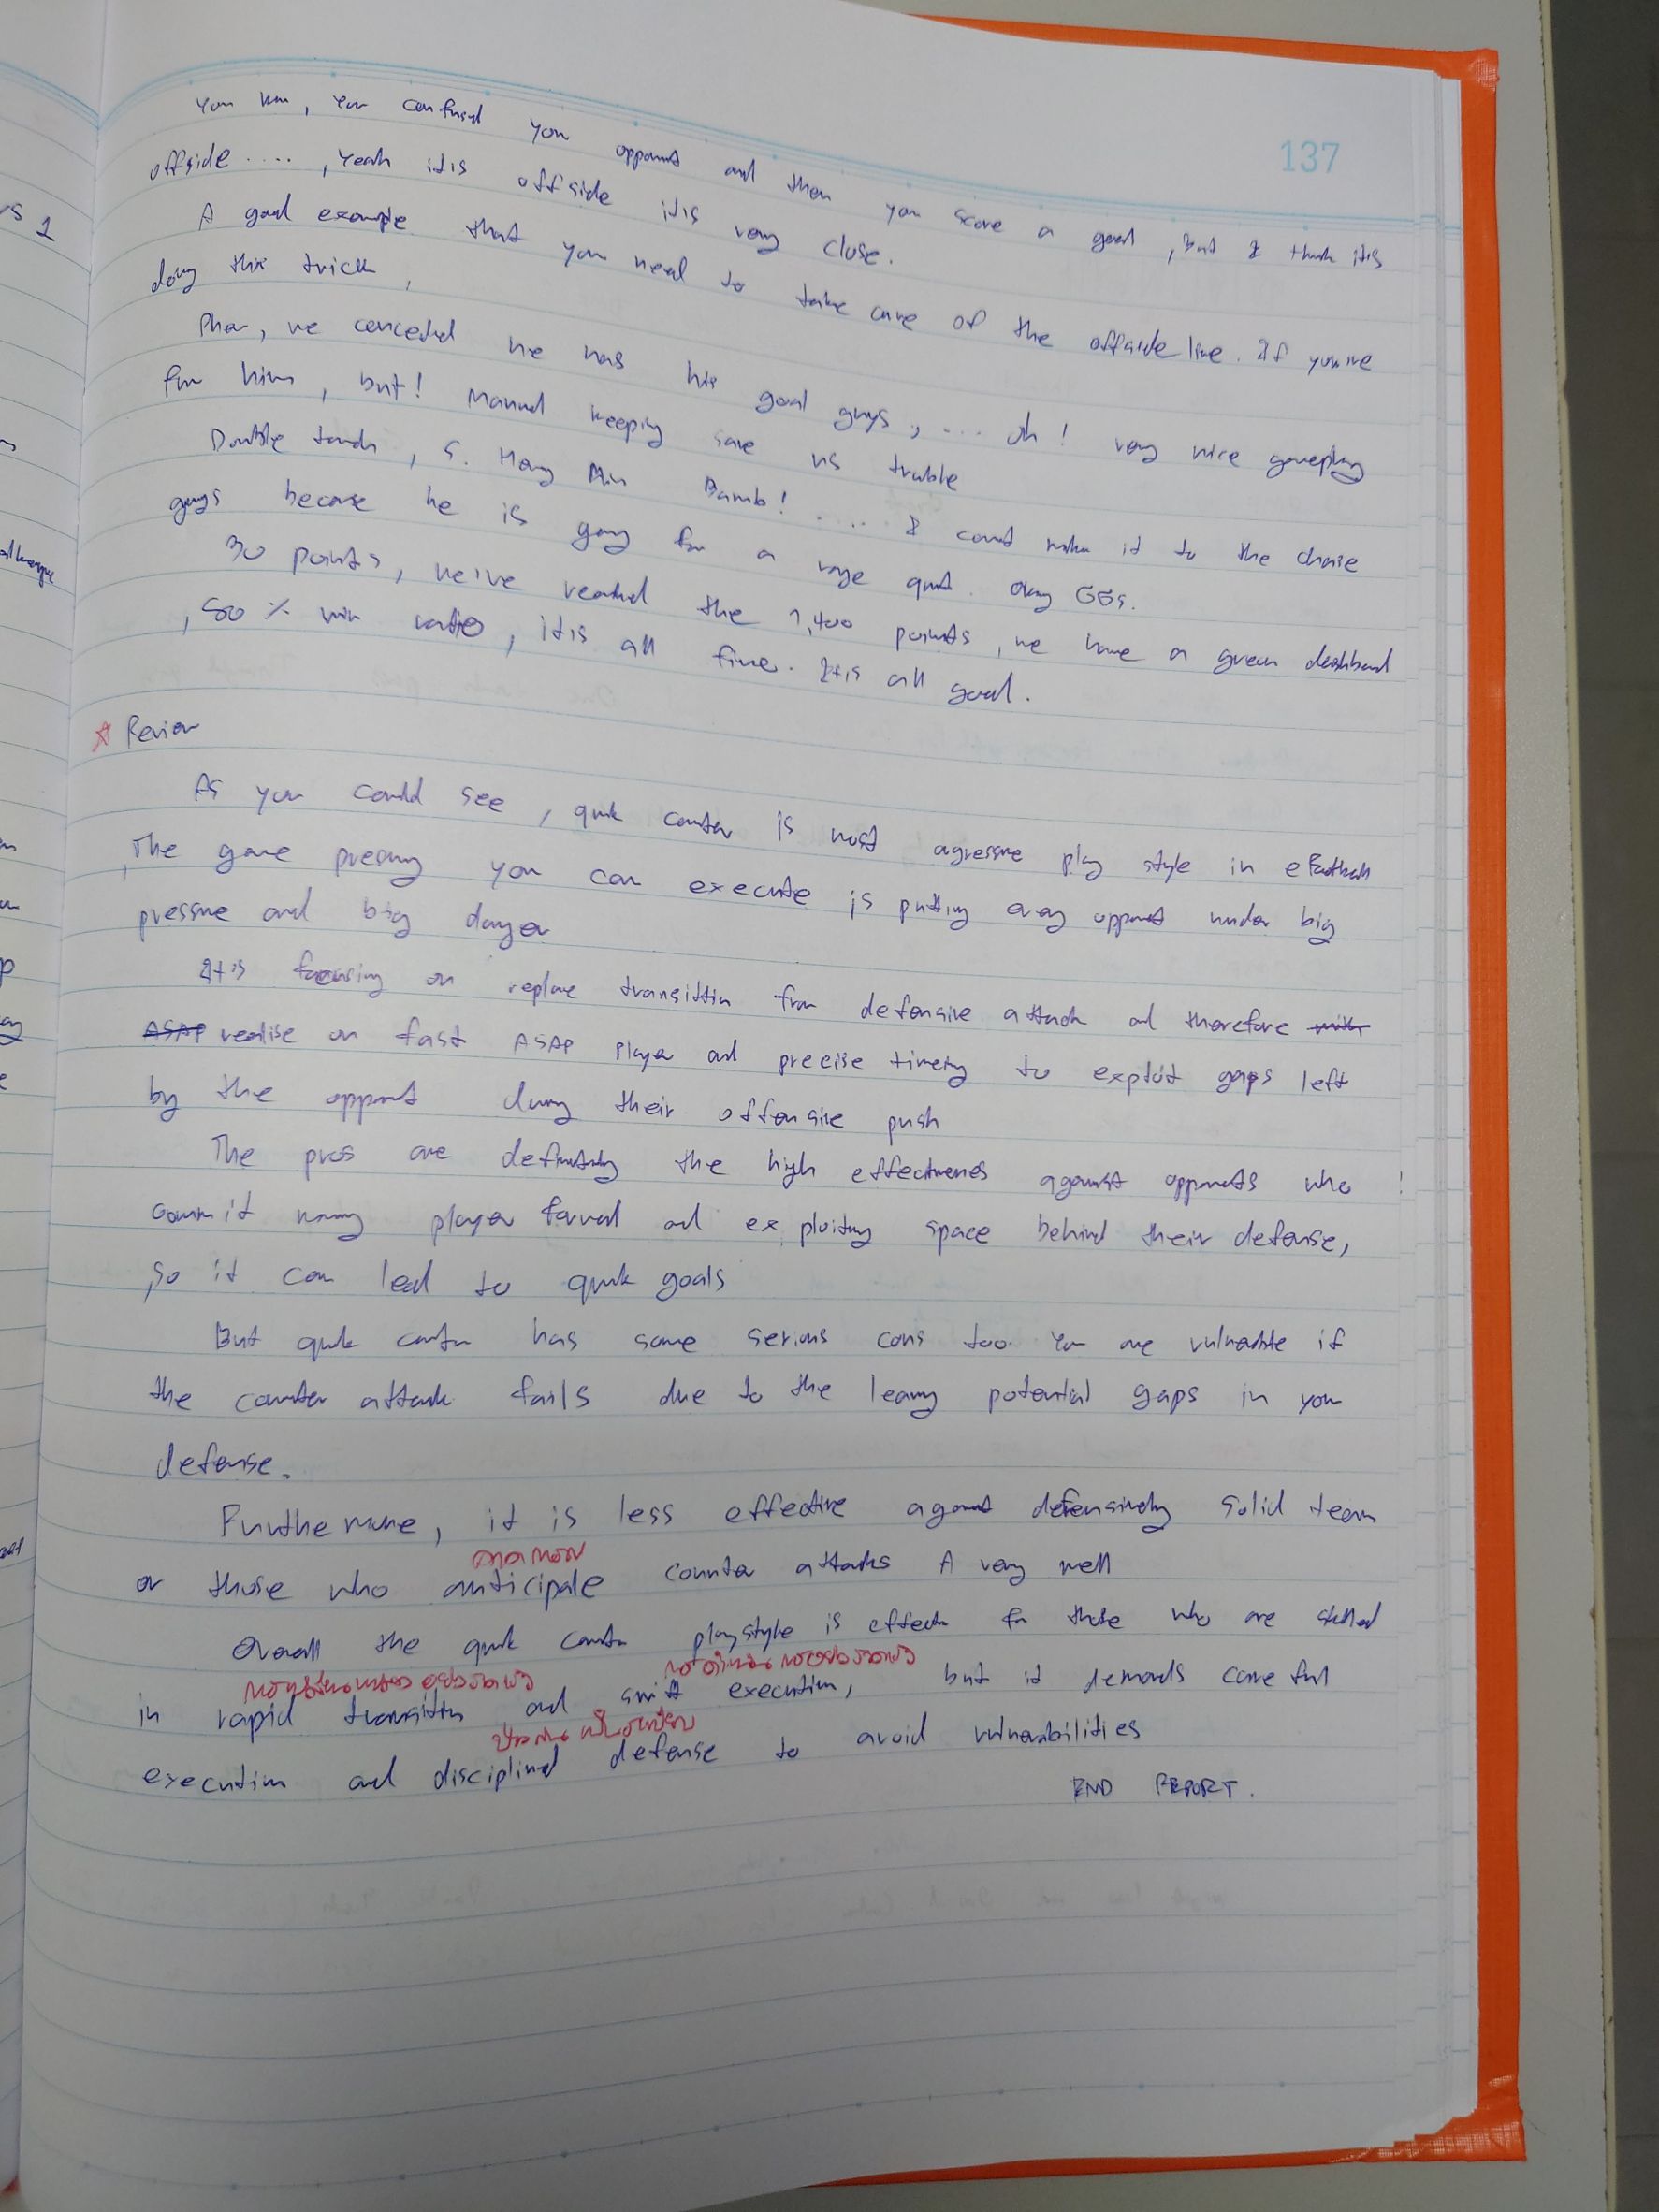 137
You kn, You confused you opponent and then you score a goal, but I think it is
offside ...., Yeah it is offside it is very close.
A good example that you need to take care of the offside line. If you're
doing this trick,
Phew, we conceded he has his goal guys, ... oh! very nice gameplay
for him, but! Manuel keeping save us trouble
Double touch, S. Heng Min Bamb! .... I cant make it to the
guys because he is going for a rage quit. Okay GGs.
30 points, we've reached the 1,400 points, we have a green dashboard
, 50 % win ratio, it is all fine. It is all good.
Review
As you could see, quick counter is most agressive play style in eFootball
, The game pressing you can execute is putting every opponent under big
pressure and big danger
It is focusing on replace transittin from defensive attack and therefore
ASAP realise on fast ASAP player and precise timeing to exploit gaps left
by the opponent during their offensive push
The pros are definitely the high effectivenes against opponents who
commit many player forward and exploiting space behind their defense,
so it can lead to quick goals
But quick counter has some serious cons too. You are vulnerable if
the counter attack fails due to the leaving potential gaps in your
defense.
Furthermore, it is less effective against defensively solid team
คาดการณ์
or those who anticipate counter attacks A very well
Overall the quick counter playstyle is effective for those who are skilled
การเปลี่ยนแปลงอย่างรวดเร็ว การดำเนินการอย่างรวดเร็ว
in rapid transition and swift execution, but it demands careful
ป้องกัน เป็นระเบียบ
execution and disciplined defense to avoid vulnerabilities
END REPORT.